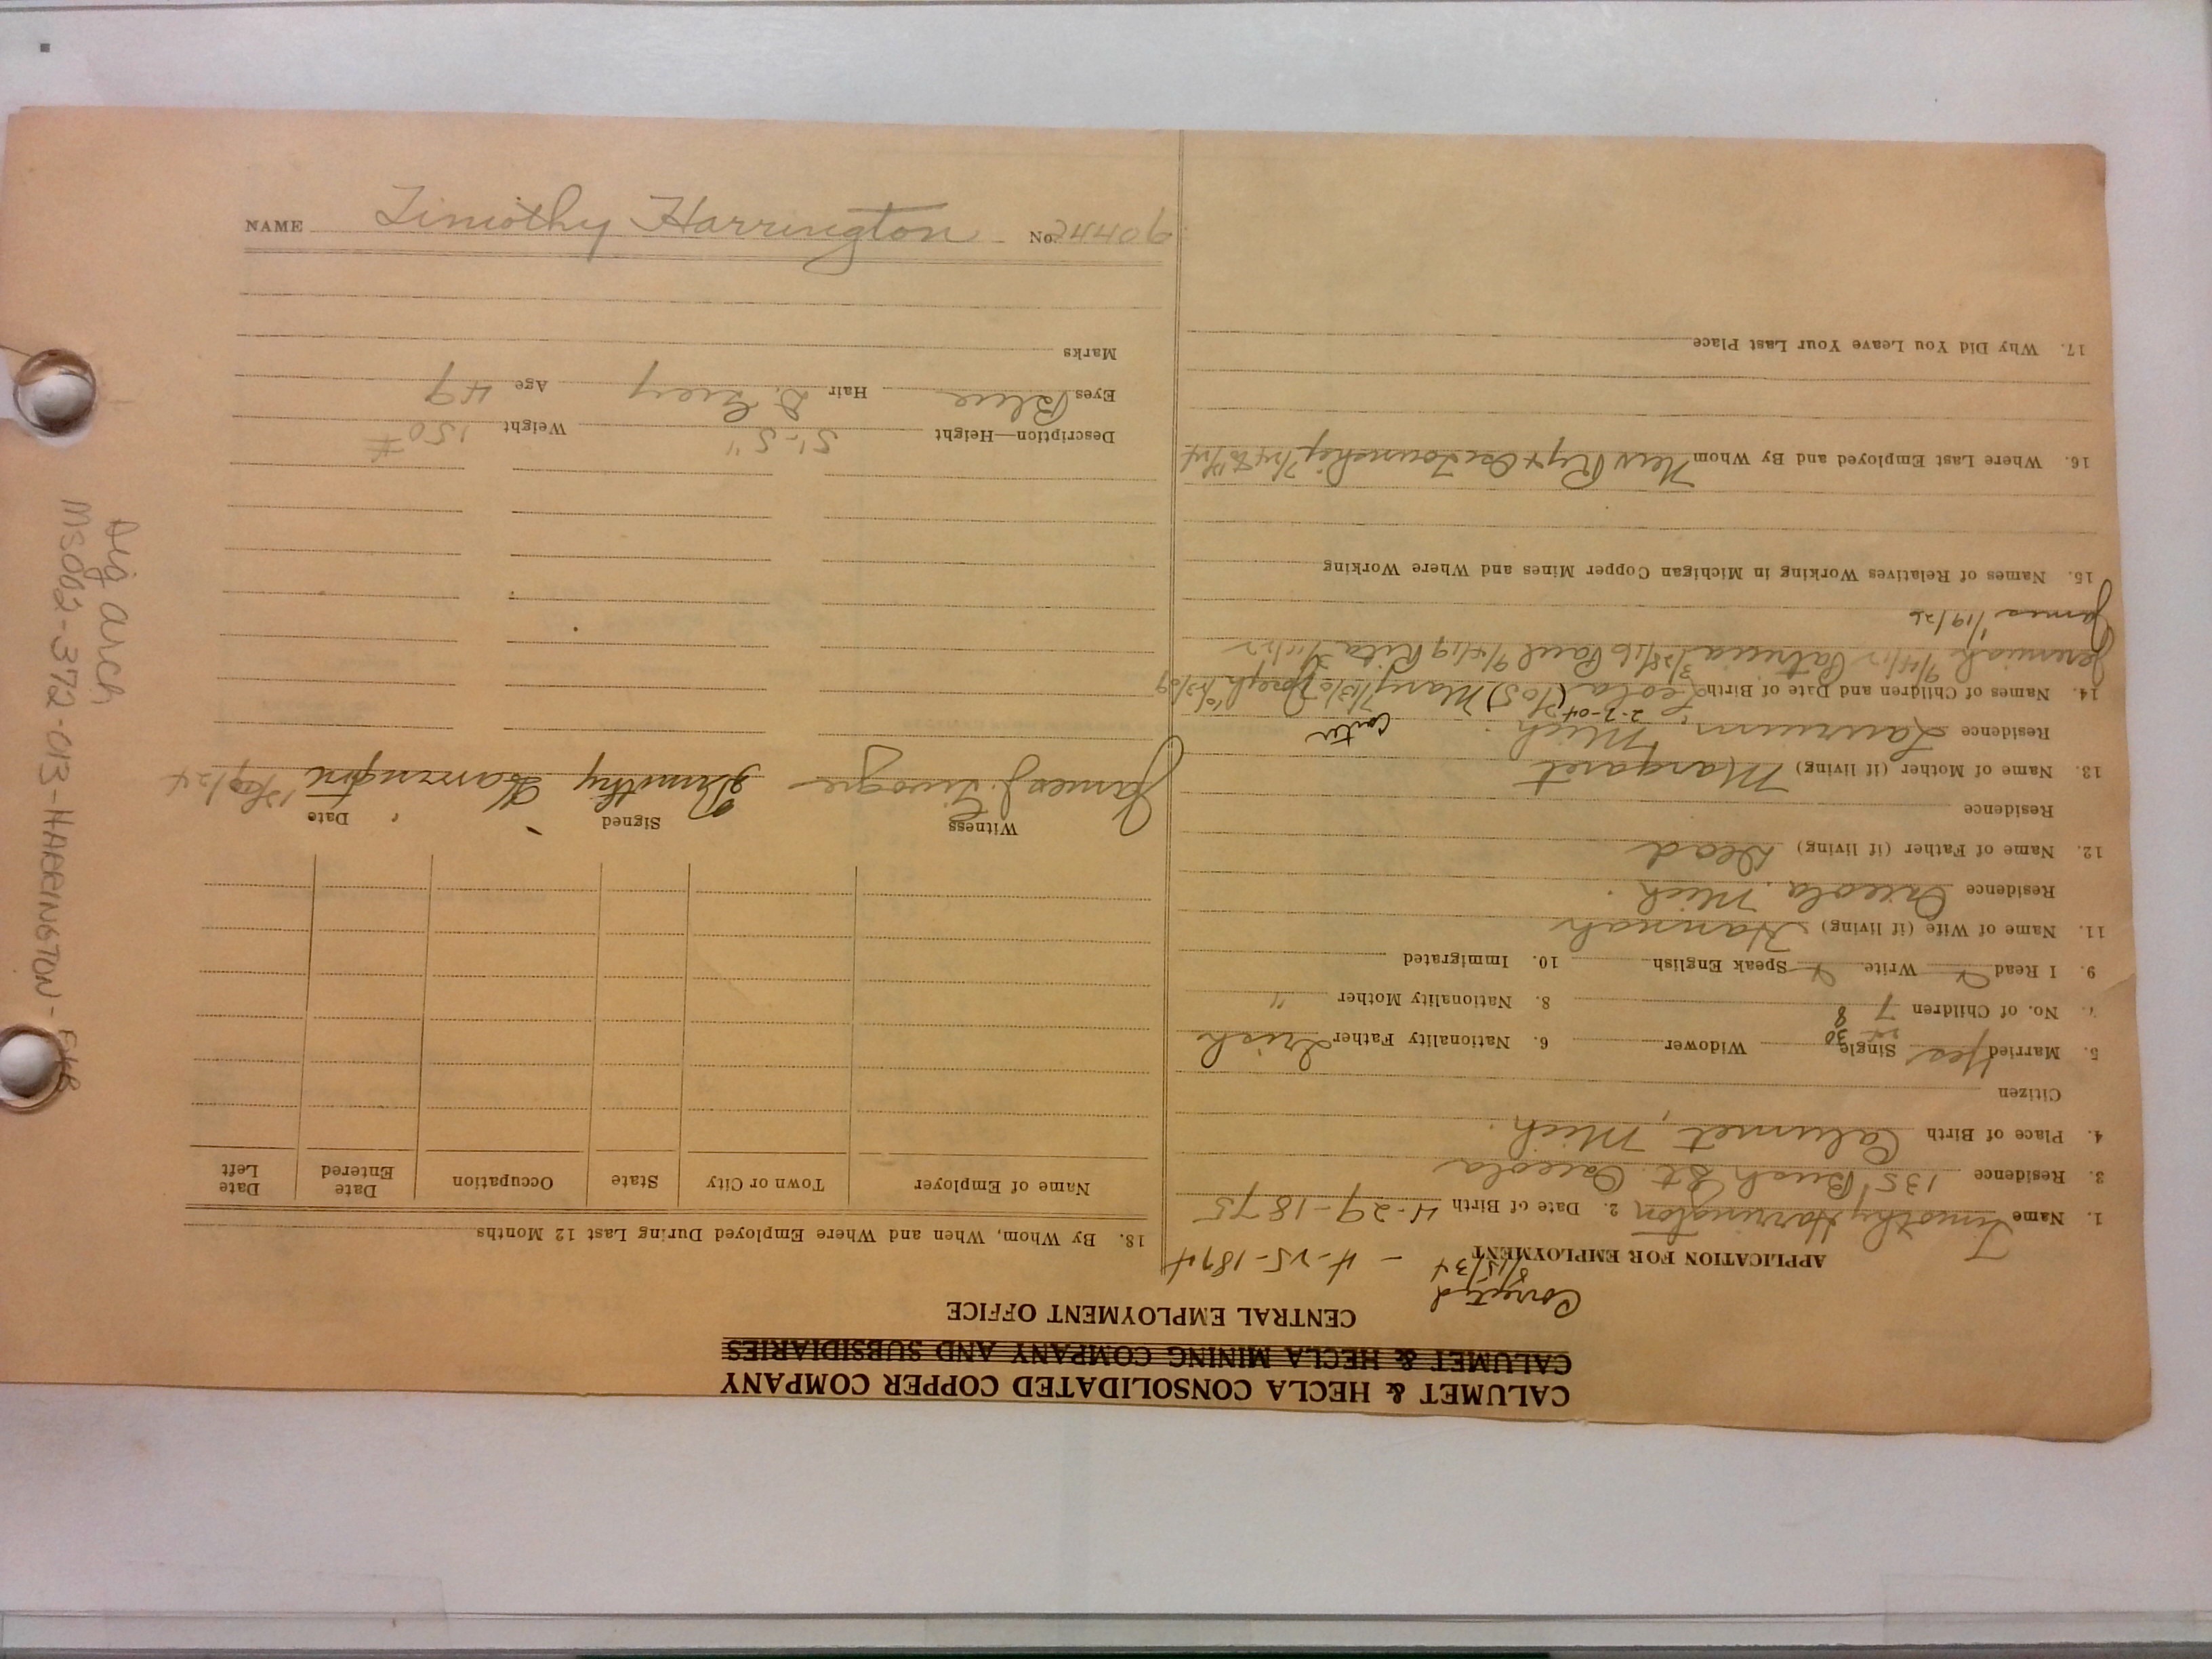 CALUMET & HECLA CONSOLIDATED COPPER COMPANY
CALUMET & HECLA MINING COMPANY AND SUBSIDIARIES
CENTRAL EMPLOYMENT OFFICE
APPLICATION FOR EMPLOYMENT
Corrected 8/15/34 - 4-25-1874
1. Name Timothy Harrington 2. Date of Birth 4-29-1875
3. Residence 135 Bush St. Osceola
4. Place of Birth Calumet, Mich.
Citizen
5. Married Yes Single Widower 6. Nationality Father Irish
7. No. of Children 7 8 8. Nationality Mother "
9. I Read Write Speak English 10. Immigrated
11. Name of Wife (if living) Hannah
Residence Osceola, Mich.
12. Name of Father (if living) Dead
Residence
13. Name of Mother (if living) Margaret
Residence Laurium, Mich.
14. Names of Children and Date of Birth Leola 2-2-04 Mary Joseph
Jeremiah Patricia 3/28/16 Paul 9/4/19 Rita
James 1/19/26
15. Names of Relatives Working in Michigan Copper Mines and Where Working
16. Where Last Employed and By Whom Township
17. Why Did You Leave Your Last Place
18. By Whom, When and Where Employed During Last 12 Months
Name of Employer Town or City State Occupation Date Entered Date Left
Witness Signed Date
James J. Timothy Harrington
Description—Height 5'-5" Weight 150#
Eyes Blue Hair D. Grey Age 49
Marks
NAME Timothy Harrington No.
Dig arch
MS002-372-013-HARRINGTON-